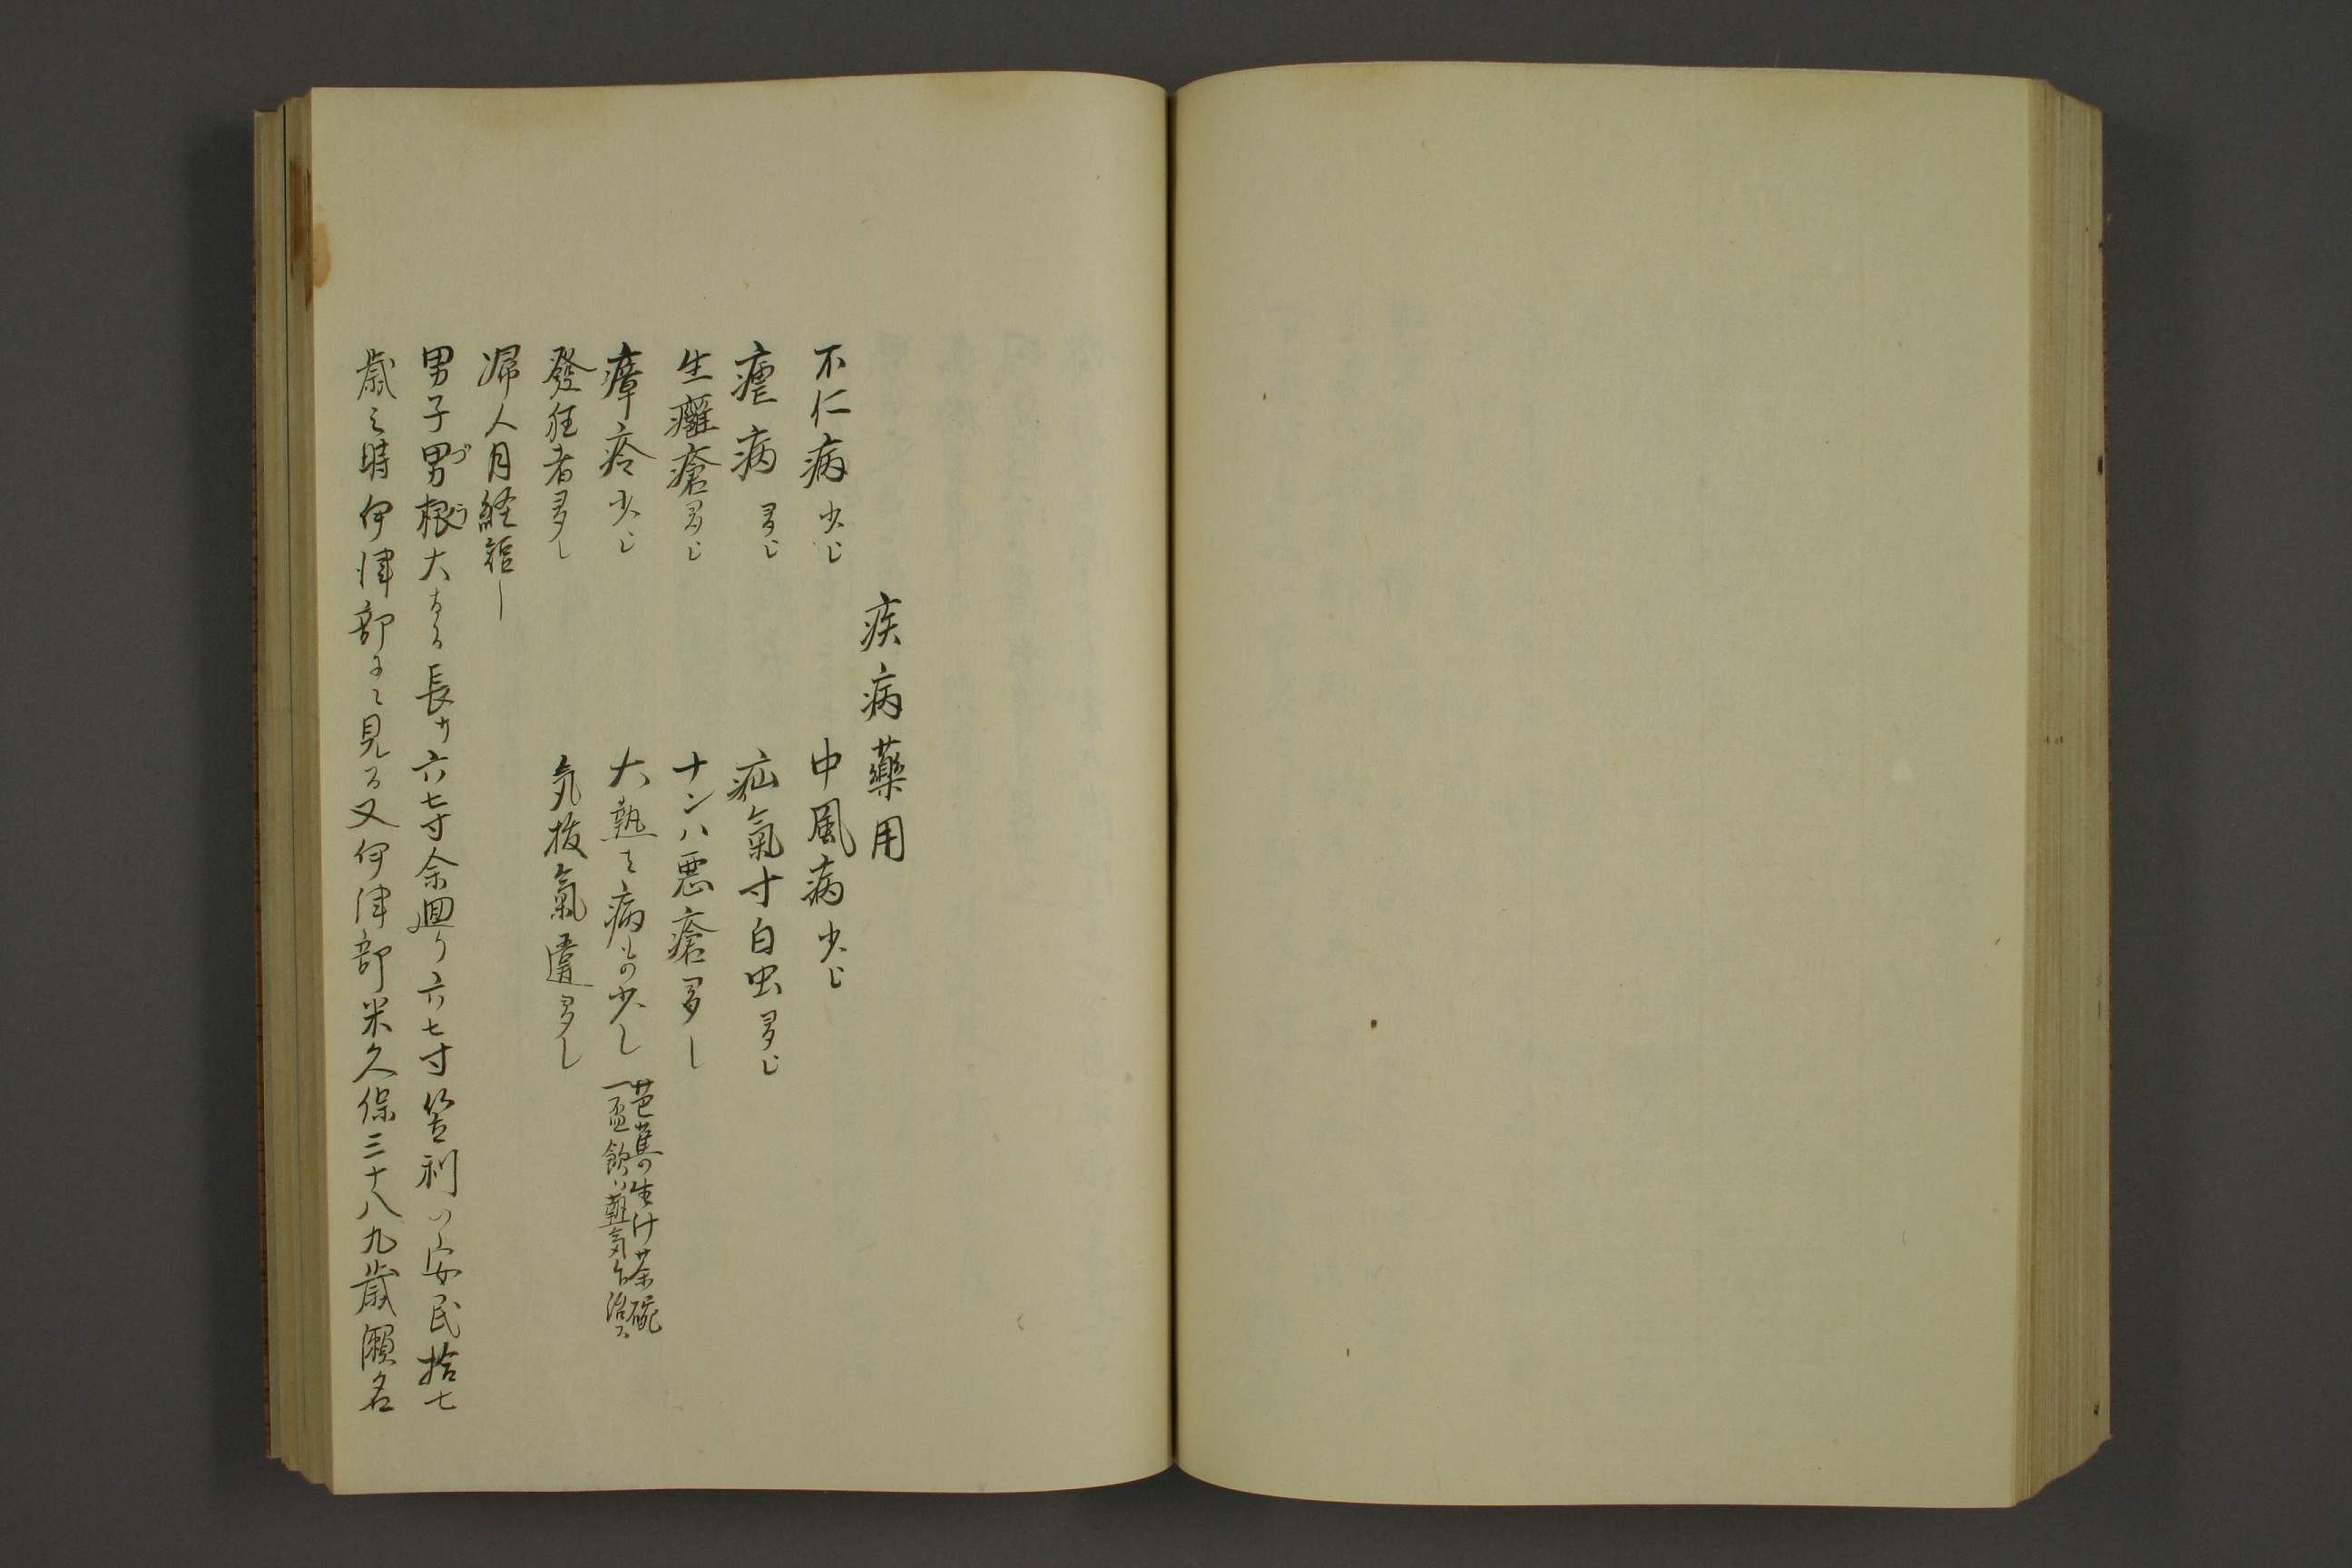 疾病藥用
不仁病少し　中風病少し
瘧病多し　疝氣寸白虫多し
生癰瘡多し　ナンハ悪瘡多し
瘴疫少し　大熱之病もの少し　芭蕉の生汁茶碗
一盃飲ハ熱気乍治ス
發狂者多し　気抜氣違多し
婦人月経短し
男子男根大ナル長サ六七寸余廻り六七寸笠利ツ安民拾七
歳之時伊津部ニ而見る又伊津部米久保三十八九歳瀬名
づ
う